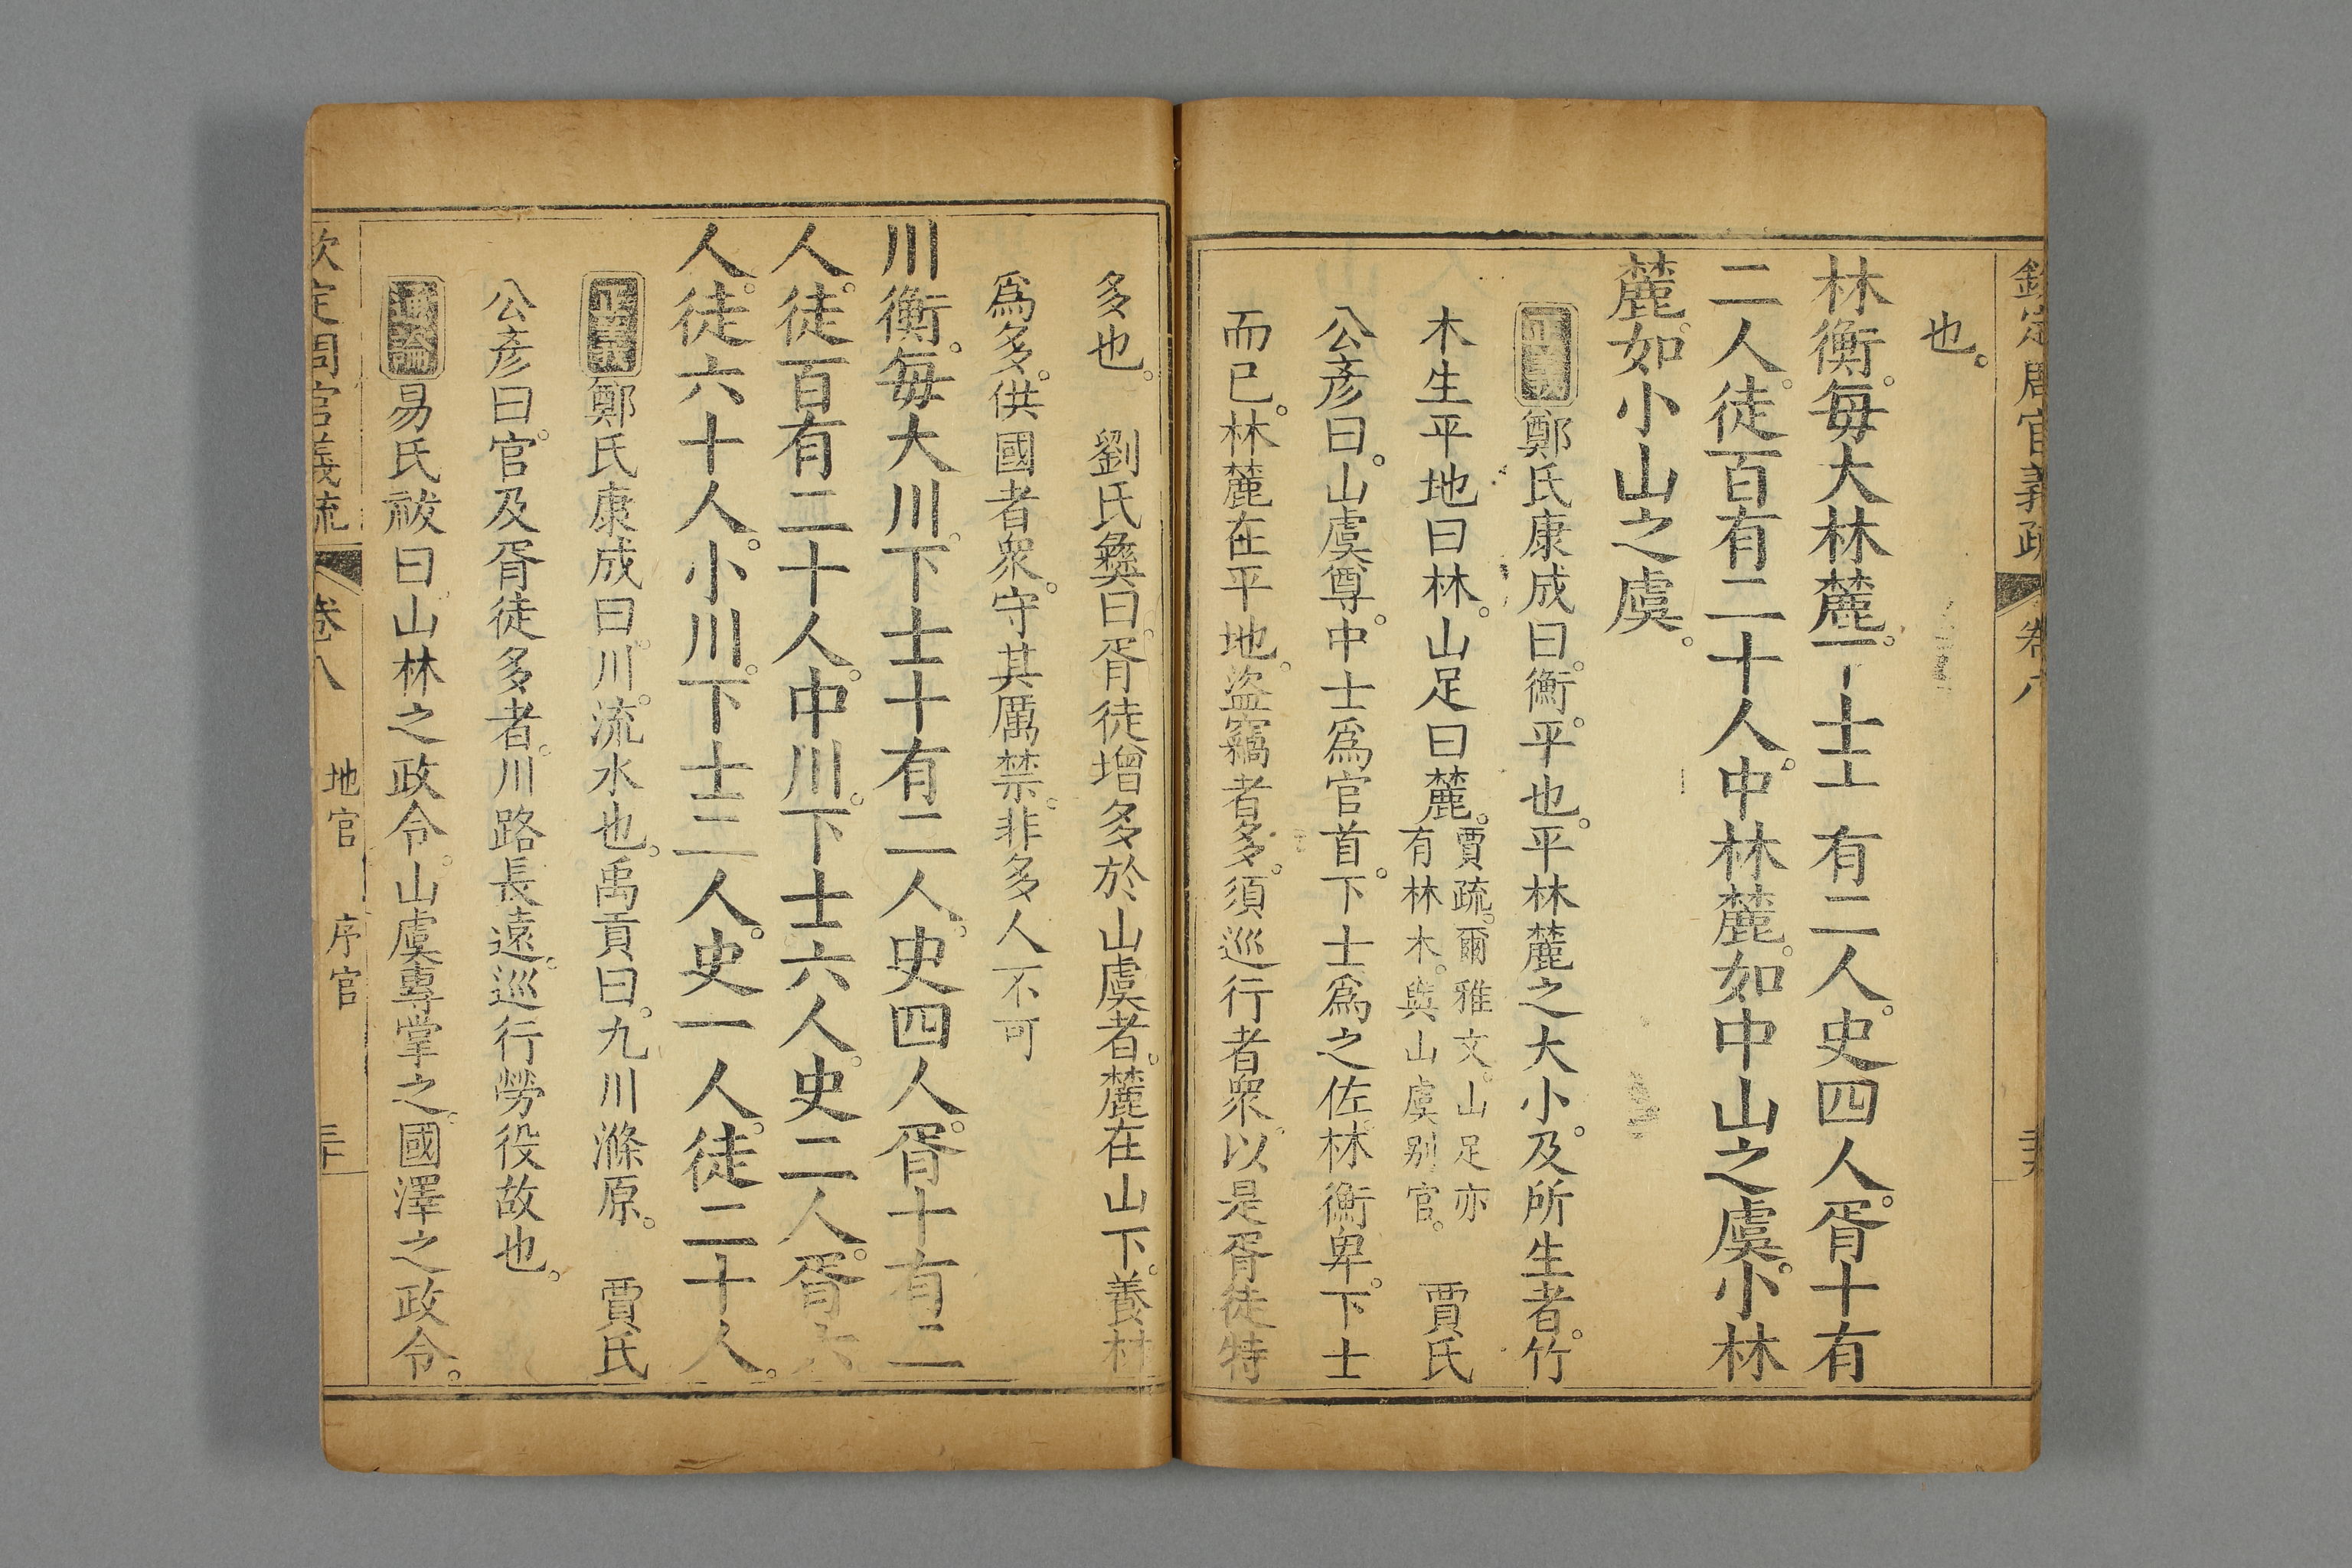 欽定周官義疏 卷八
也。
林衡。每大林麓。下士十有二人。史四人。胥十有
二人。徒百有二十人。中林麓。如中山之虞。小林
麓。如小山之虞。
正義鄭氏康成曰。衡。平也。平林麓之大小。及所生者。竹
木生平地曰林。山足曰麓。賈疏。爾雅文。山足亦
有林木。與山虞别官。 賈氏
公彥曰。山虞尊。中士爲官首。下士爲之佐。林衡卑。下士
而已。林麓在平地。盜竊者多。須巡行者衆。以是胥徒特
多也。 劉氏彝曰。胥徒增多於山虞者。麓在山下。養材
爲多。供國者衆。守其厲禁。非多人不可
川衡。每大川。下士十有二人。史四人。胥十有二
人。徒百有二十人。中川。下士六人。史二人。胥六
人。徒六十人。小川。下士二人。史一人。徒二十人。
正義鄭氏康成曰。川。流水也。禹貢曰。九川滌原。 賈氏
公彥曰。官及胥徒多者。川路長遠。巡行勞役故也。
通論易氏祓曰。山林之政令。山虞專掌之。國澤之政令。
欽定周官義疏 卷八 地官 序官 三十